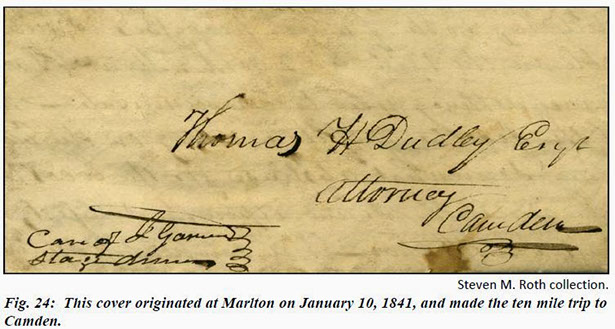 Thomas H Dudley Esqr
Attorney
Camden
Care of J
Stage driver
Steven M. Roth collection.
Fig. 24:  This cover originated at Marlton on January 10, 1841, and made the ten mile trip to
Camden.